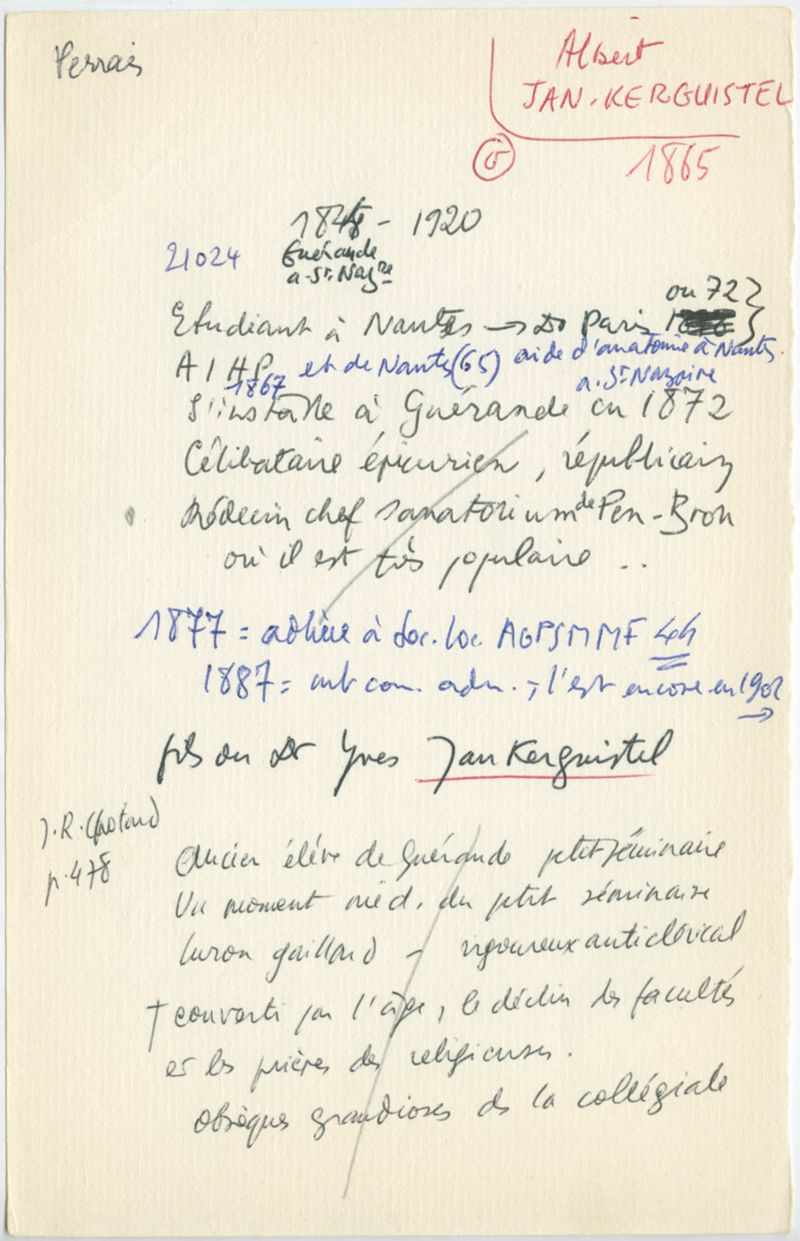 Perrais
Albert
JAN-KERGUISTEL
1865
- 1920
21024
Guérande
a. St. Nazre
ou 72
Etudiant à Nantes → Dr Paris
A I HP et de Nantes (65) aide d'anatomie à Nantes.
1867 a. St Nazaire
S'installe à Guérande en 1872
Célibataire épicurien, républicain
Médecin chef sanatorium de Pen-Bron
où il est très populaire ..
1877 = adhère à Soc. loc AGPSMMF 44
1887 = mb com. adm. ; l'est encore en 1902
→
fils du Dr Yves Jan Kerguistel
J.R. Chotard
p. 478
Ancien élève de Guérande petit séminaire
Un moment méd. du petit séminaire
luron gaillard - vigoureux anticlérical
† converti par l'âge, le déclin des facultés
et les prières des religieuses.
Obsèques grandioses ds la collégiale